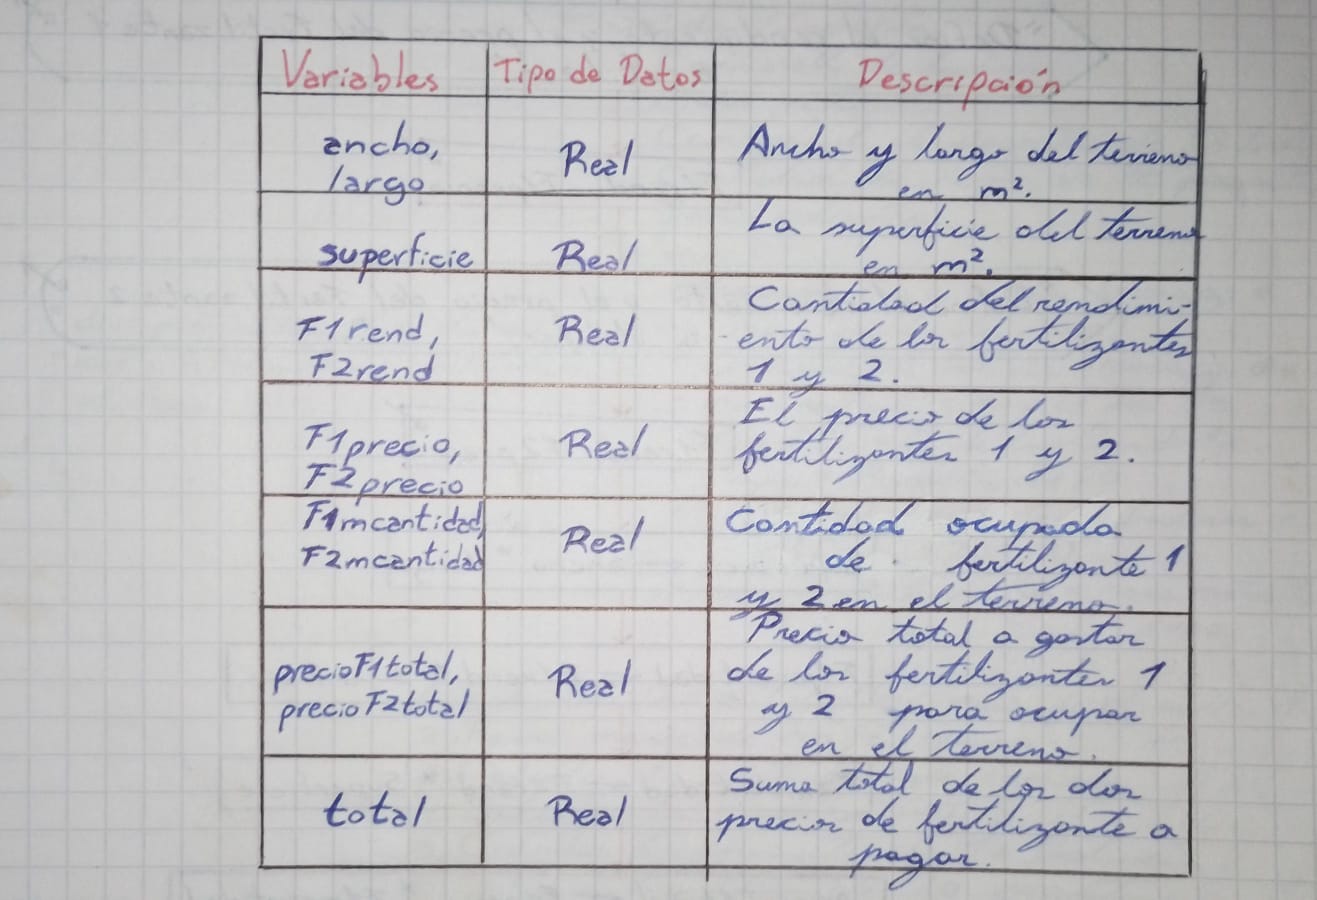 Variables Tipo de Datos Descripción
ancho,
largo
Real
Ancho y largo del terreno
en m².
superficie
Real
La superficie del terreno
en m².
F1rend,
F2rend
Real
Cantidad del rendimi-
ento de los fertilizantes
1 y 2.
F1precio,
F2precio
Real
El precio de los
fertilizantes 1 y 2.
F1mcantidad,
F2mcantidad
Real
Cantidad ocupada
de fertilizante 1
y 2 en el terreno.
precioF1total,
precioF2total
Real
Precio total a gastar
de los fertilizantes 1
y 2 para ocupar
en el terreno.
total
Real
Suma total de los dos
precios de fertilizante a
pagar.